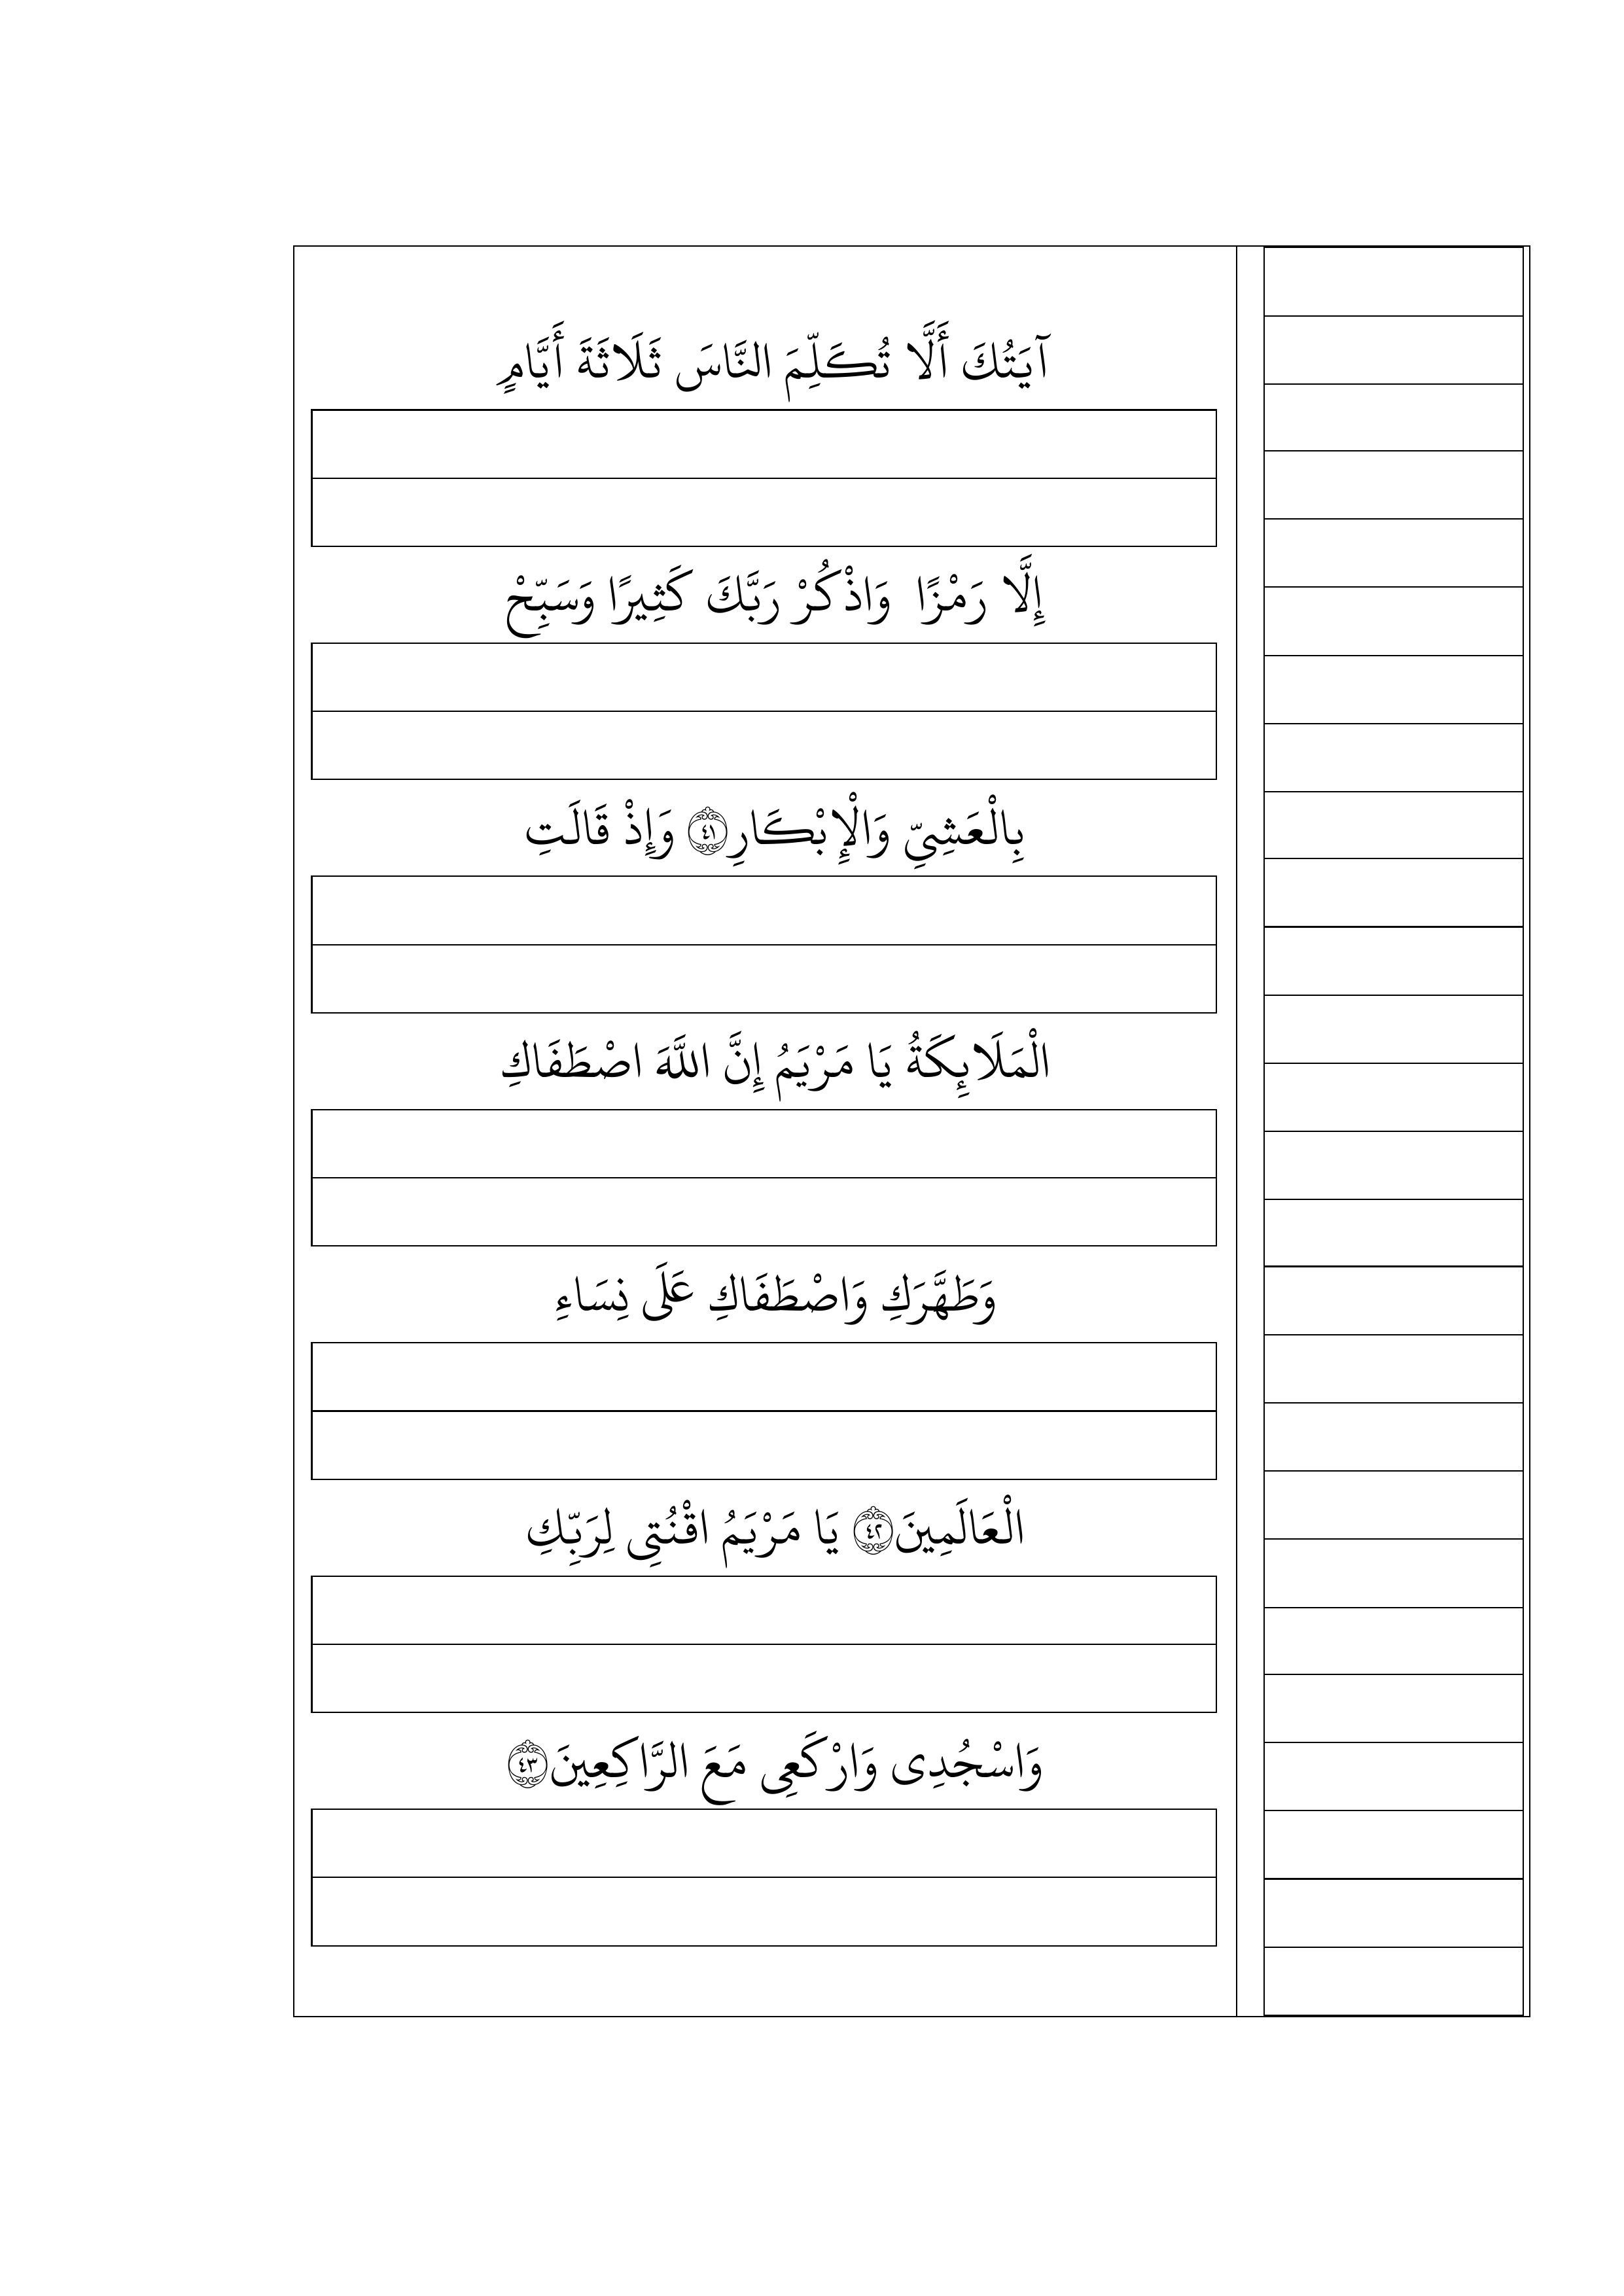 آيَتُكَ أَلَّا تُكَلِّمَ النَّاسَ ثَلَاثَةَ أَيَّامٍ
إِلَّا رَمْزًا وَاذْكُرْ رَبَّكَ كَثِيرًا وَسَبِّحْ
بِالْعَشِىِّ وَالْإِبْكَارِ ﴿٤١﴾ وَإِذْ قَالَتِ
الْمَلَائِكَةُ يَا مَرْيَمُ إِنَّ اللَّهَ اصْطَفَاكِ
وَطَهَّرَكِ وَاصْطَفَاكِ عَلَى نِسَاءِ
الْعَالَمِينَ ﴿٤٢﴾ يَا مَرْيَمُ اقْنُتِى لِرَبِّكِ
وَاسْجُدِى وَارْكَعِى مَعَ الرَّاكِعِينَ ﴿٤٣﴾